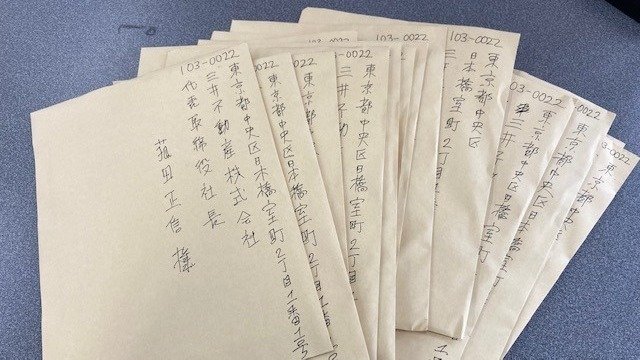 103-0022
東京都中央区日本橋室町2丁目1番1号
三井不動産株式会社
代表取締役社長
菰田正信 様
東京都中央区日本橋室町2丁目1番
東京都
103-0022
東京都中央区日橋室町2丁目
三井不動
103-0022
東京都中央区
日本橋室町2丁
103-0022
東京都中央区日橋室町
三井不
103-0022
東京都中央区日本橋
三井
東京都中央
東京都